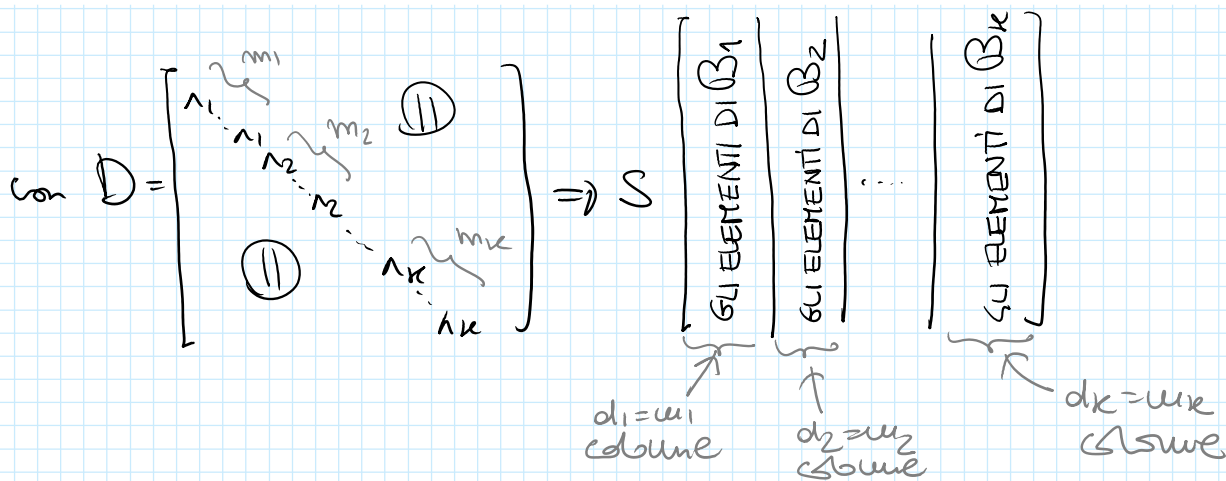 con D = [ λ1 ... λ1 λ2 ... λ2 ... λk ... λk ] => S [ GLI ELEMENTI DI B1 | GLI ELEMENTI DI B2 | .... | GLI ELEMENTI DI Bk ]
m1
m2
mk
d1=m1
colonne
d2=m2
colonne
dk=mk
colonne